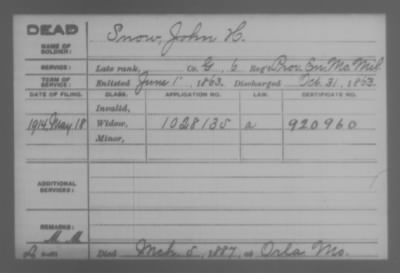 DEAD Snow, John H.
NAME OF SOLDIER:
SERVICE: Late rank, Co. G, 6 Reg't Prov. En. Mo. Mil
TERM OF SERVICE: Enlisted June 1, 1863. Discharged Oct. 31, 1863.
DATE OF FILING. CLASS. APPLICATION NO. LAW. CERTIFICATE NO.
Invalid,
1914 May 18 Widow, 1028135 a 920960
Minor,
ADDITIONAL SERVICES:
REMARKS:
Died Mch 5, 1887, at Orla Mo.